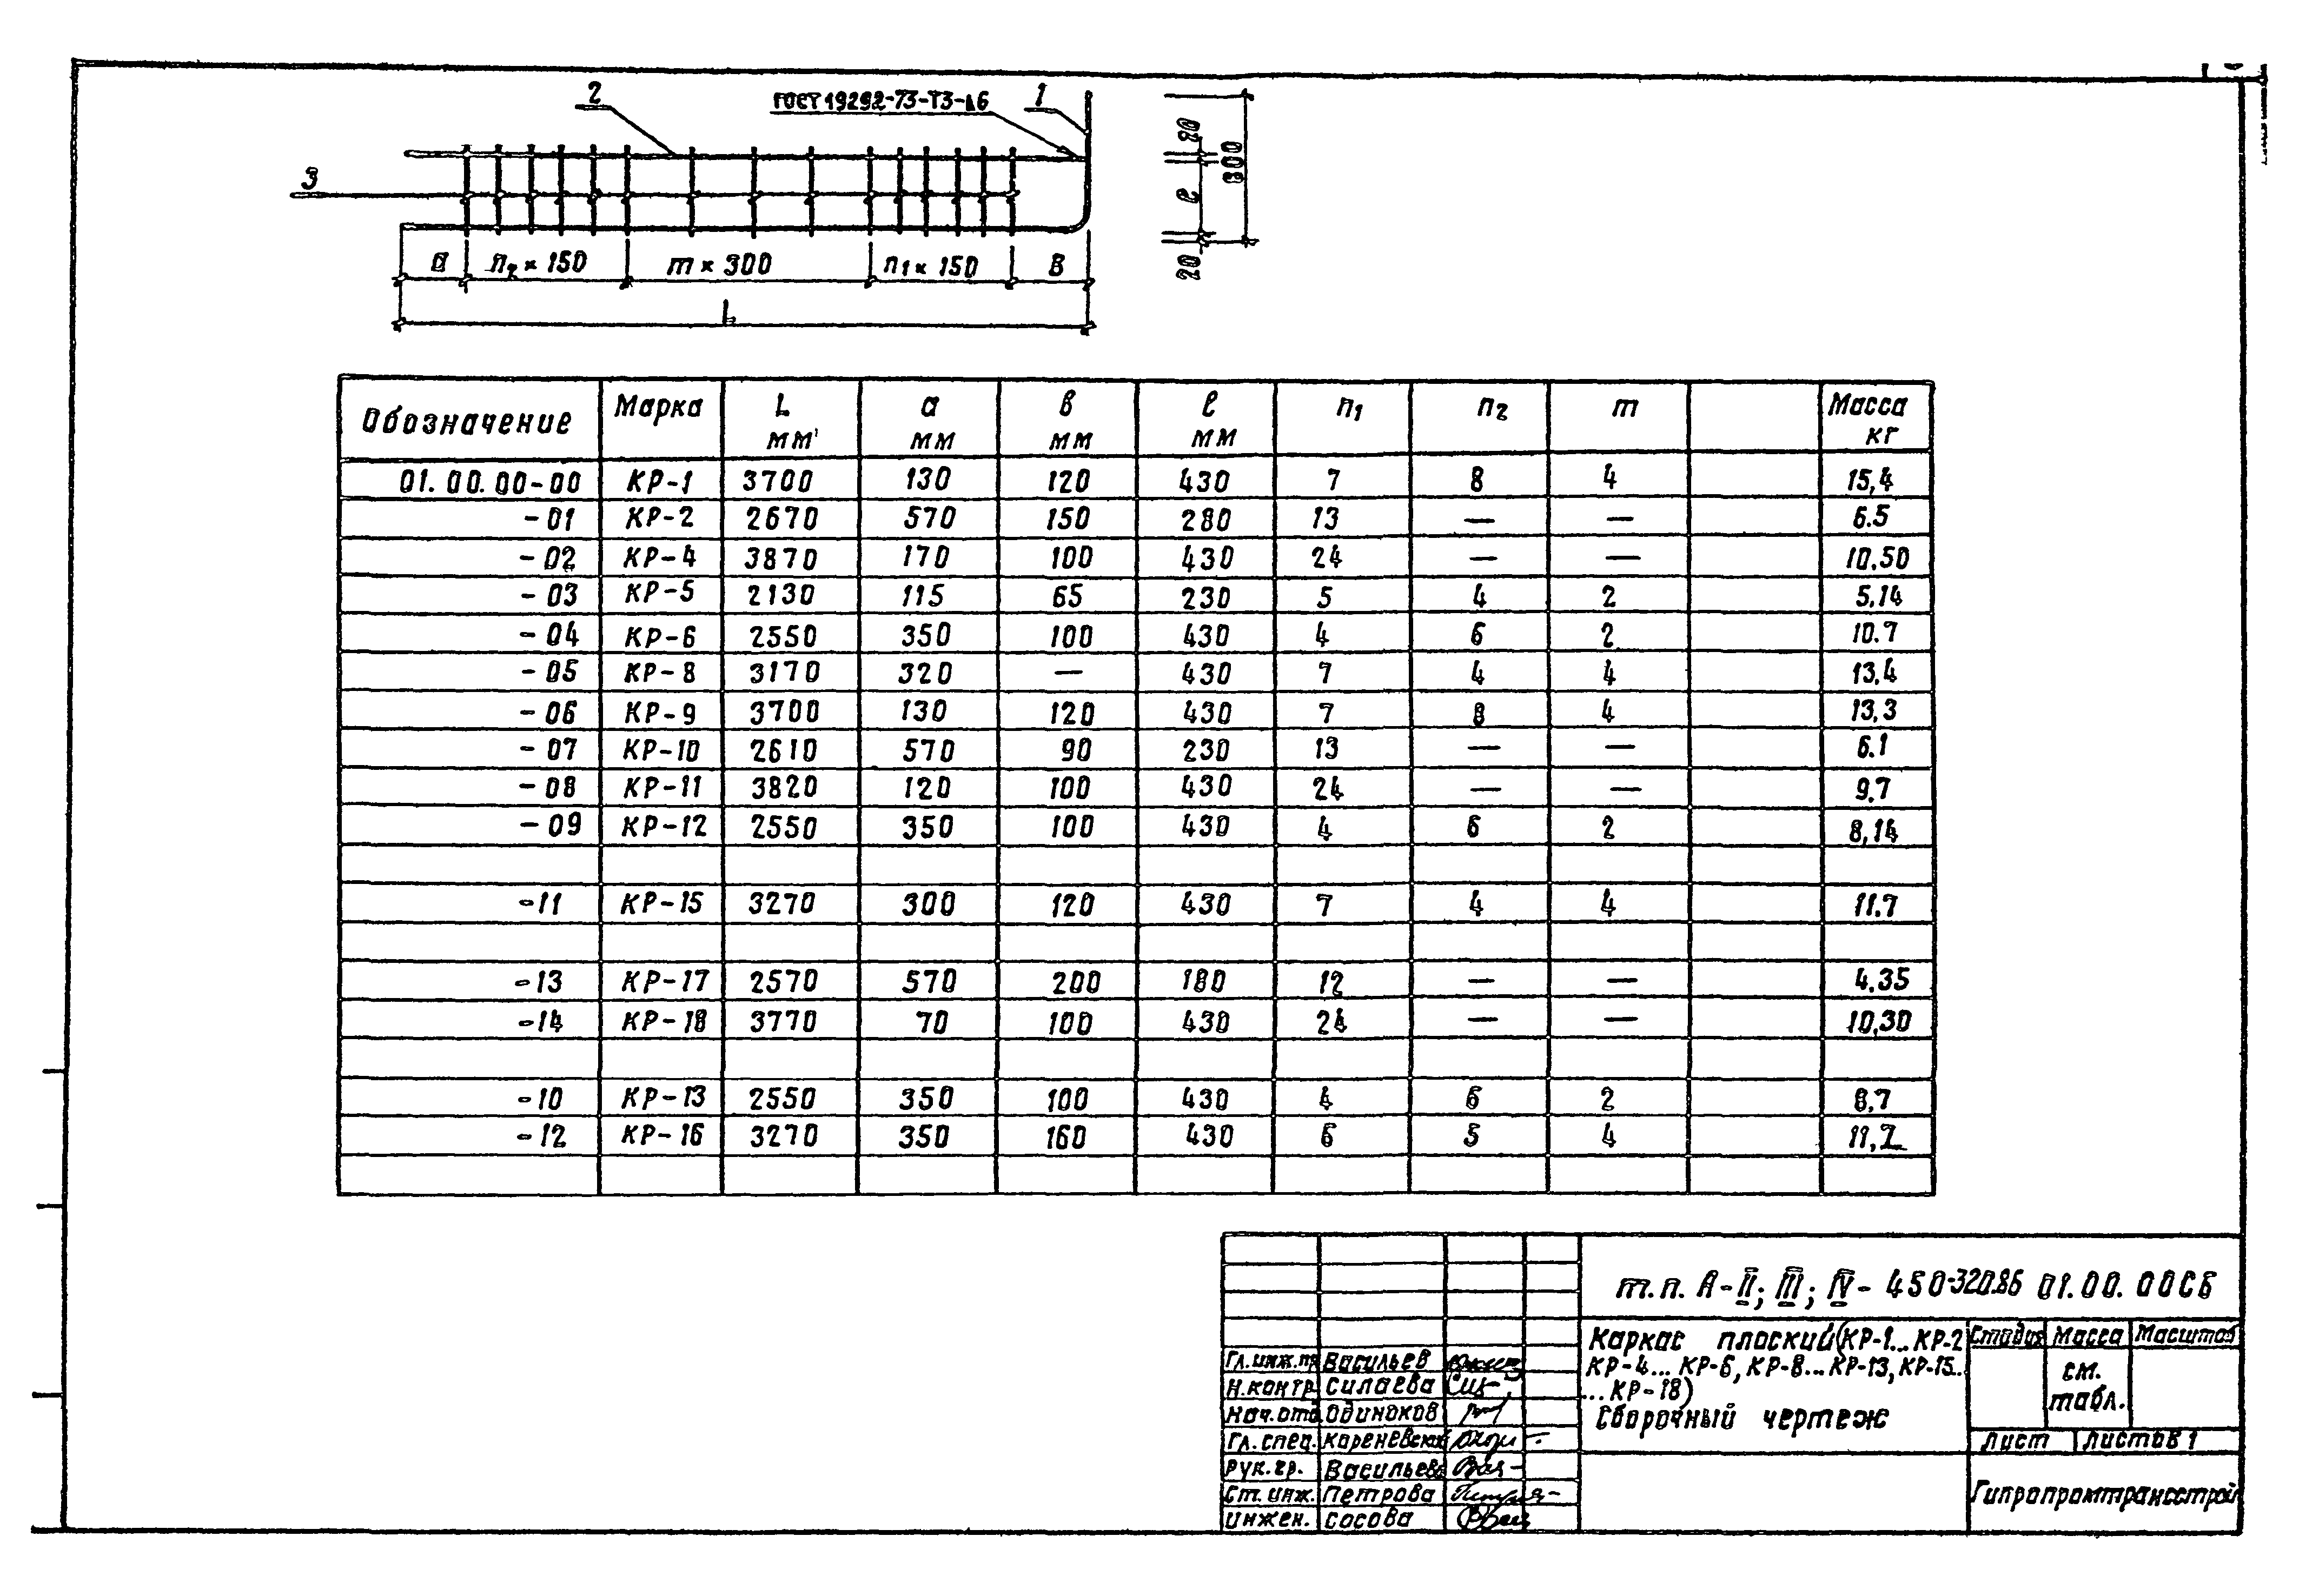 2
ГОСТ 19292-73-Т3-
1
3
a
n2 × 150
m × 300
n1 × 150
в
L
20
ℓ
20
800
Обозначение Марка L мм а мм в мм ℓ мм n1 n2 m Масса кг
01.00.00-00 КР-1 3700 130 120 430 7 8 4 15,4
-01 КР-2 2670 570 150 280 13 — — 6.5
-02 КР-4 3870 170 100 430 24 — — 10,50
-03 КР-5 2130 115 65 230 5 4 2 5,14
-04 КР-6 2550 350 100 430 4 6 2 10.7
-05 КР-8 3170 320 — 430 7 4 4 13,4
-06 КР-9 3700 130 120 430 7 8 4 13,3
-07 КР-10 2610 570 90 230 13 — — 6.1
-08 КР-11 3820 120 100 430 24 — — 9,7
-09 КР-12 2550 350 100 430 4 6 2 8,14
-11 КР-15 3270 300 120 430 7 4 4 11.7
-13 КР-17 2570 570 200 180 12 — — 4.35
-14 КР-18 3770 70 100 430 24 — — 10,30
-10 КР-13 2550 350 100 430 4 6 2 8,7
-12 КР-16 3270 350 160 430 6 5 4 11,7
т.п. А-II; III; IV- 450-320.86 01.00.00СБ
Каркас плоский (КР-1...КР-2
КР-4...КР-6, КР-8...КР-13, КР-15..
...КР-18)
Сборочный чертеж
Стадия Масса Масштаб
см.
табл.
Лист Листов 1
Гипропромтрансстрой
Гл.инж.пр Васильев
Н.контр Силаева
Нач.отд Одиноков
Гл.спец. Кореневская
Рук.гр. Васильева
Ст.инж. Петрова
Инжен. Сосова